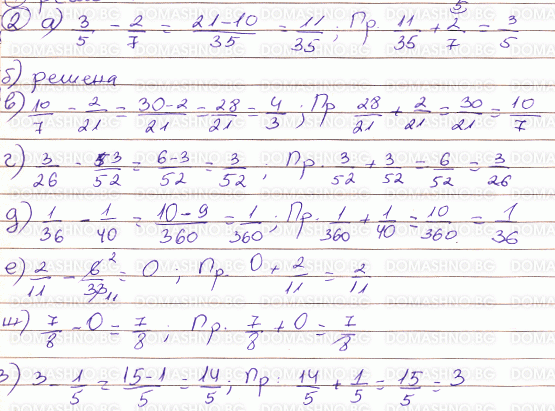 2 а) 3/5 - 2/7 = 21-10/35 = 11/35 ; Пр. 11/35 + 5 2/7 = 3/5
б) решена
в) 10/7 - 2/21 = 30-2/21 = 28/21 = 4/3 ; Пр 28/21 + 2/21 = 30/21 = 10/7
г) 3/26 - 3/52 = 6-3/52 = 3/52 , Пр. 3/52 + 3/52 = 6/52 = 3/26
д) 1/36 - 1/40 = 10-9/360 = 1/360 ; Пр. 1/360 + 1/40 = 10/360 = 1/36
е) 2/11 - 6 2/33 11 = 0 ; Пр. 0 + 2/11 = 2/11
ж) 7/8 - 0 = 7/8 ; Пр. 7/8 + 0 = 7/8
з) 3 - 1/5 = 15-1/5 = 14/5 ; Пр. 14/5 + 1/5 = 15/5 = 3